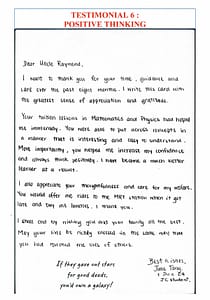 TESTIMONIAL 6 :
POSITIVE THINKING
Dear Uncle Raymond,
I want to thank you for your time, guidance and
care over the past eight months. I write this card with
the greatest sense of appreciation and gratitude.
Your tuition lessons in Mathematics and Physics had helped
me immensely. You were able to put across concepts in
a manner that is interesting and easy to understand.
More importantly, you helped me increase my confidence
and always think positively. I have become a much better
learner as a result.
I also appreciate your thoughtfulness and care for my welfare.
You would offer me rides to the MRT station when it got
late and buy me snacks, I thank you.
I shall end by wishing you and your family all the best.
May your lives be richly blessed in the same way that
you had blessed the lives of others.
If they gave out stars
for good deeds,
you'd own a galaxy!
Best wishes,